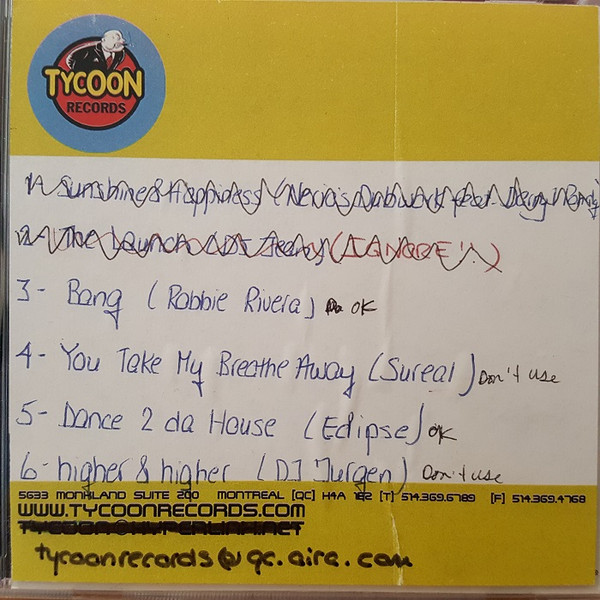 TYCOON
RECORDS
1- Sunshine & Happiness (Nerio's Dubwork feat. Darryl Pandy
2- The Launch (DJ Jean) (IGNORE!)
3- Bang (Robbie Rivera) OK
4- You Take My Breathe Away (Sureal) Don't use
5- Dance 2 da House (Eclipse) OK
6- higher & higher (DJ Jurgen) Don't use
5633 MONKLAND SUITE 200 MONTREAL [QC] H4A [T] 514.369.6789 [F] 514.369.4768
WWW.TYCOONRECORDS.COM
TYCOON@HYPERLINK.NET
tycoonrecords@qc.aira.com